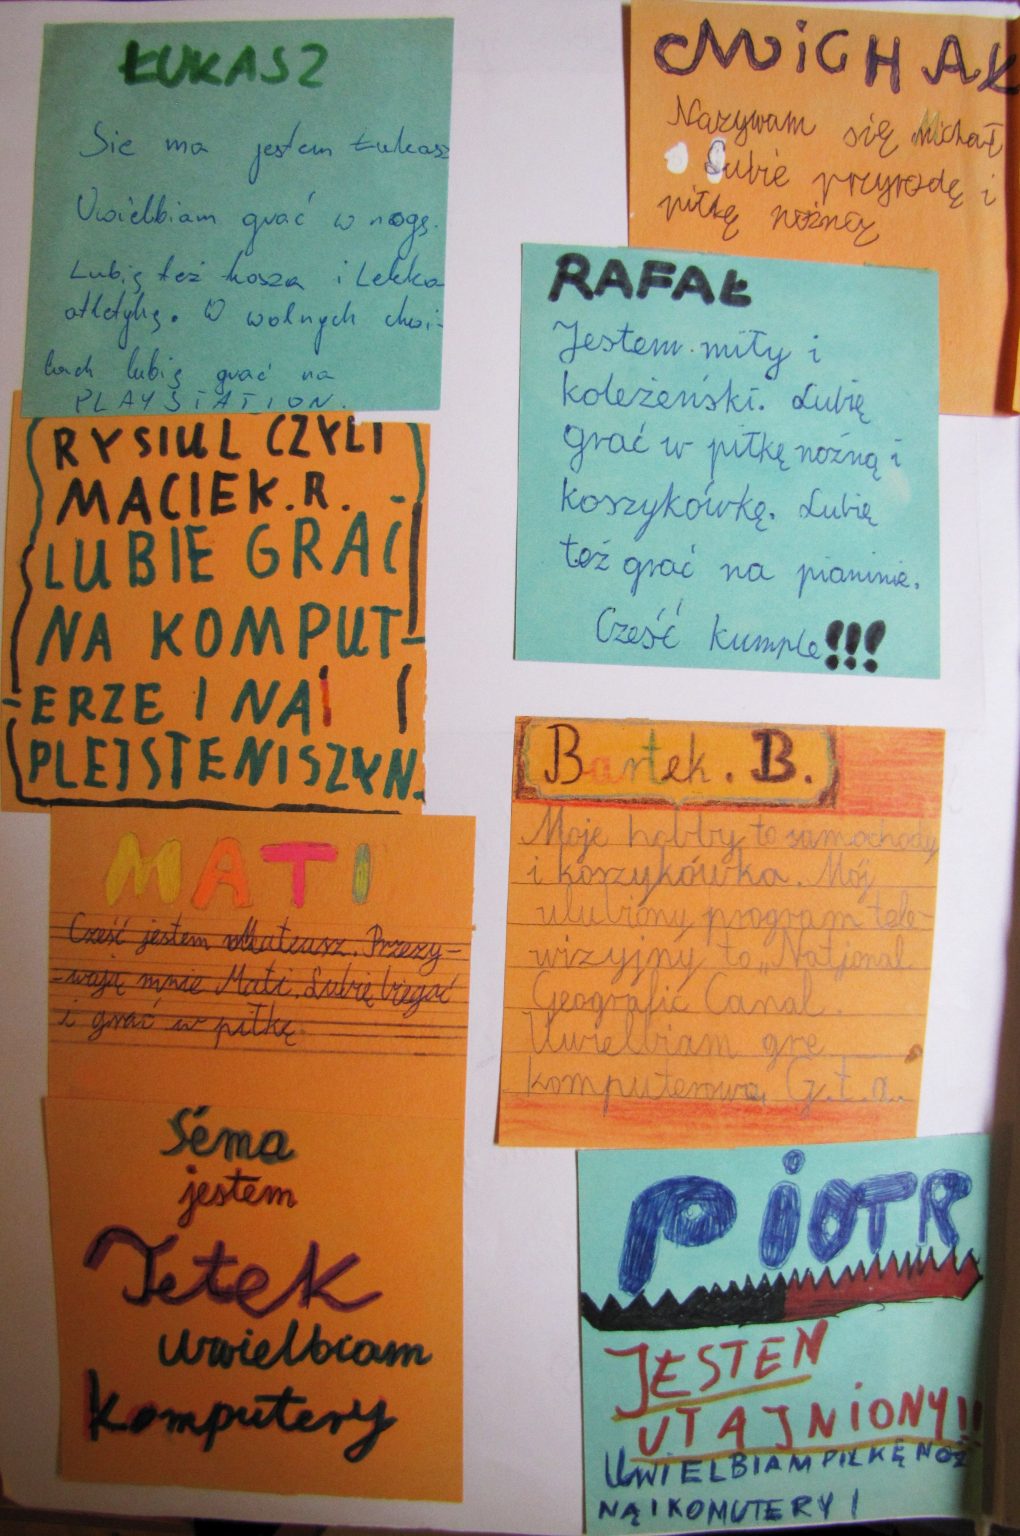 ŁUKASZ
Sie ma jestem Łukasz
Uwielbiam grać w nogę.
Lubię też kosza i Lekko
atletykę. W wolnych chwi-
lach lubię grać na
PLAYSTATION.
MICHAŁ
Nazywam się Michał
Lubie przyrodę i
piłkę nożną
RAFAŁ
Jestem miły i
koleżeński. Lubię
grać w piłkę nożną i
koszykówkę. Lubię
też grać na pianinie.
Cześć kumple!!!
RYSIUL CZYLI
MACIEK.R.
LUBIE GRAĆ
NA KOMPUT-
ERZE I NA
PLEJSTENISZYN.
Bartek. B.
Moje hobby to samochody
i koszykówka. Mój
ulubiony program tele-
wizyjny to „Natjonal
Geografic Canal.
Uwielbiam grę
komputerową G.t.a..
MATI
Cześć jestem Mateusz. Przezy-
-wają mnie Mati. Lubię biegać
i grać w piłkę.
Séma
jestem
Jetek
uwielbiam
komputery
PiOTR
JESTEN
UTAJNIONY!!
UWIELBIAM PIŁKĘ NOŻ
NĄ I KOMUTERY!